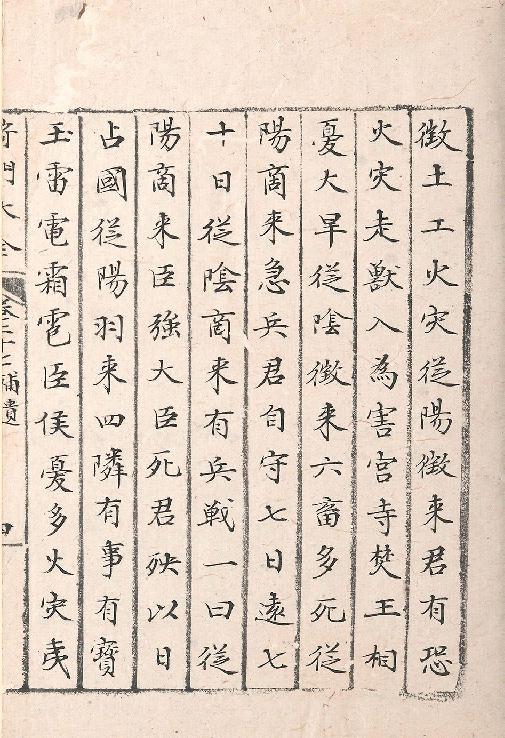 徵土工火灾從陽徵来君有恐
火灾走獸入為害宫寺焚王相
憂大旱從陰徵来六畜多死從
陽商来急兵君自守七日遠七
十日從陰商来有兵戰一曰從
陽商来臣強大臣死君殃以日
占國從陽羽来四隣有事有寳
玉雷電霜雹臣侯憂多火灾夷
竒門大全 卷三十七補遺